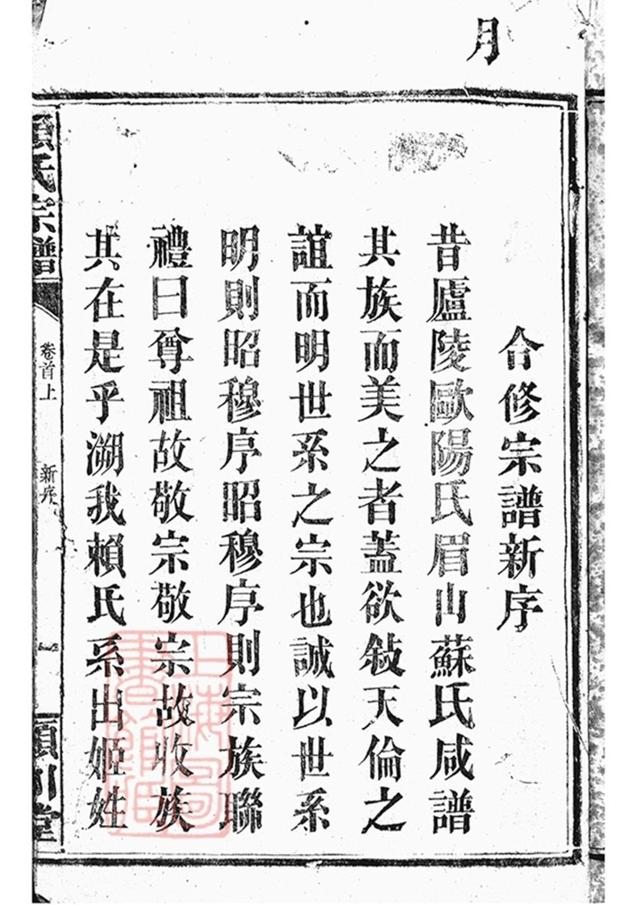 月
合修宗譜新序
昔廬陵歐陽氏眉山蘇氏咸譜
其族而美之者蓋欲敍天倫之
誼而明世系之宗也誠以世系
明則昭穆序昭穆序則宗族聯
禮曰尊祖故敬宗敬宗故收族
其在是乎溯我賴氏系出姬姓
賴氏宗譜
卷首上
新序
一
潁川堂
上海圖書館藏